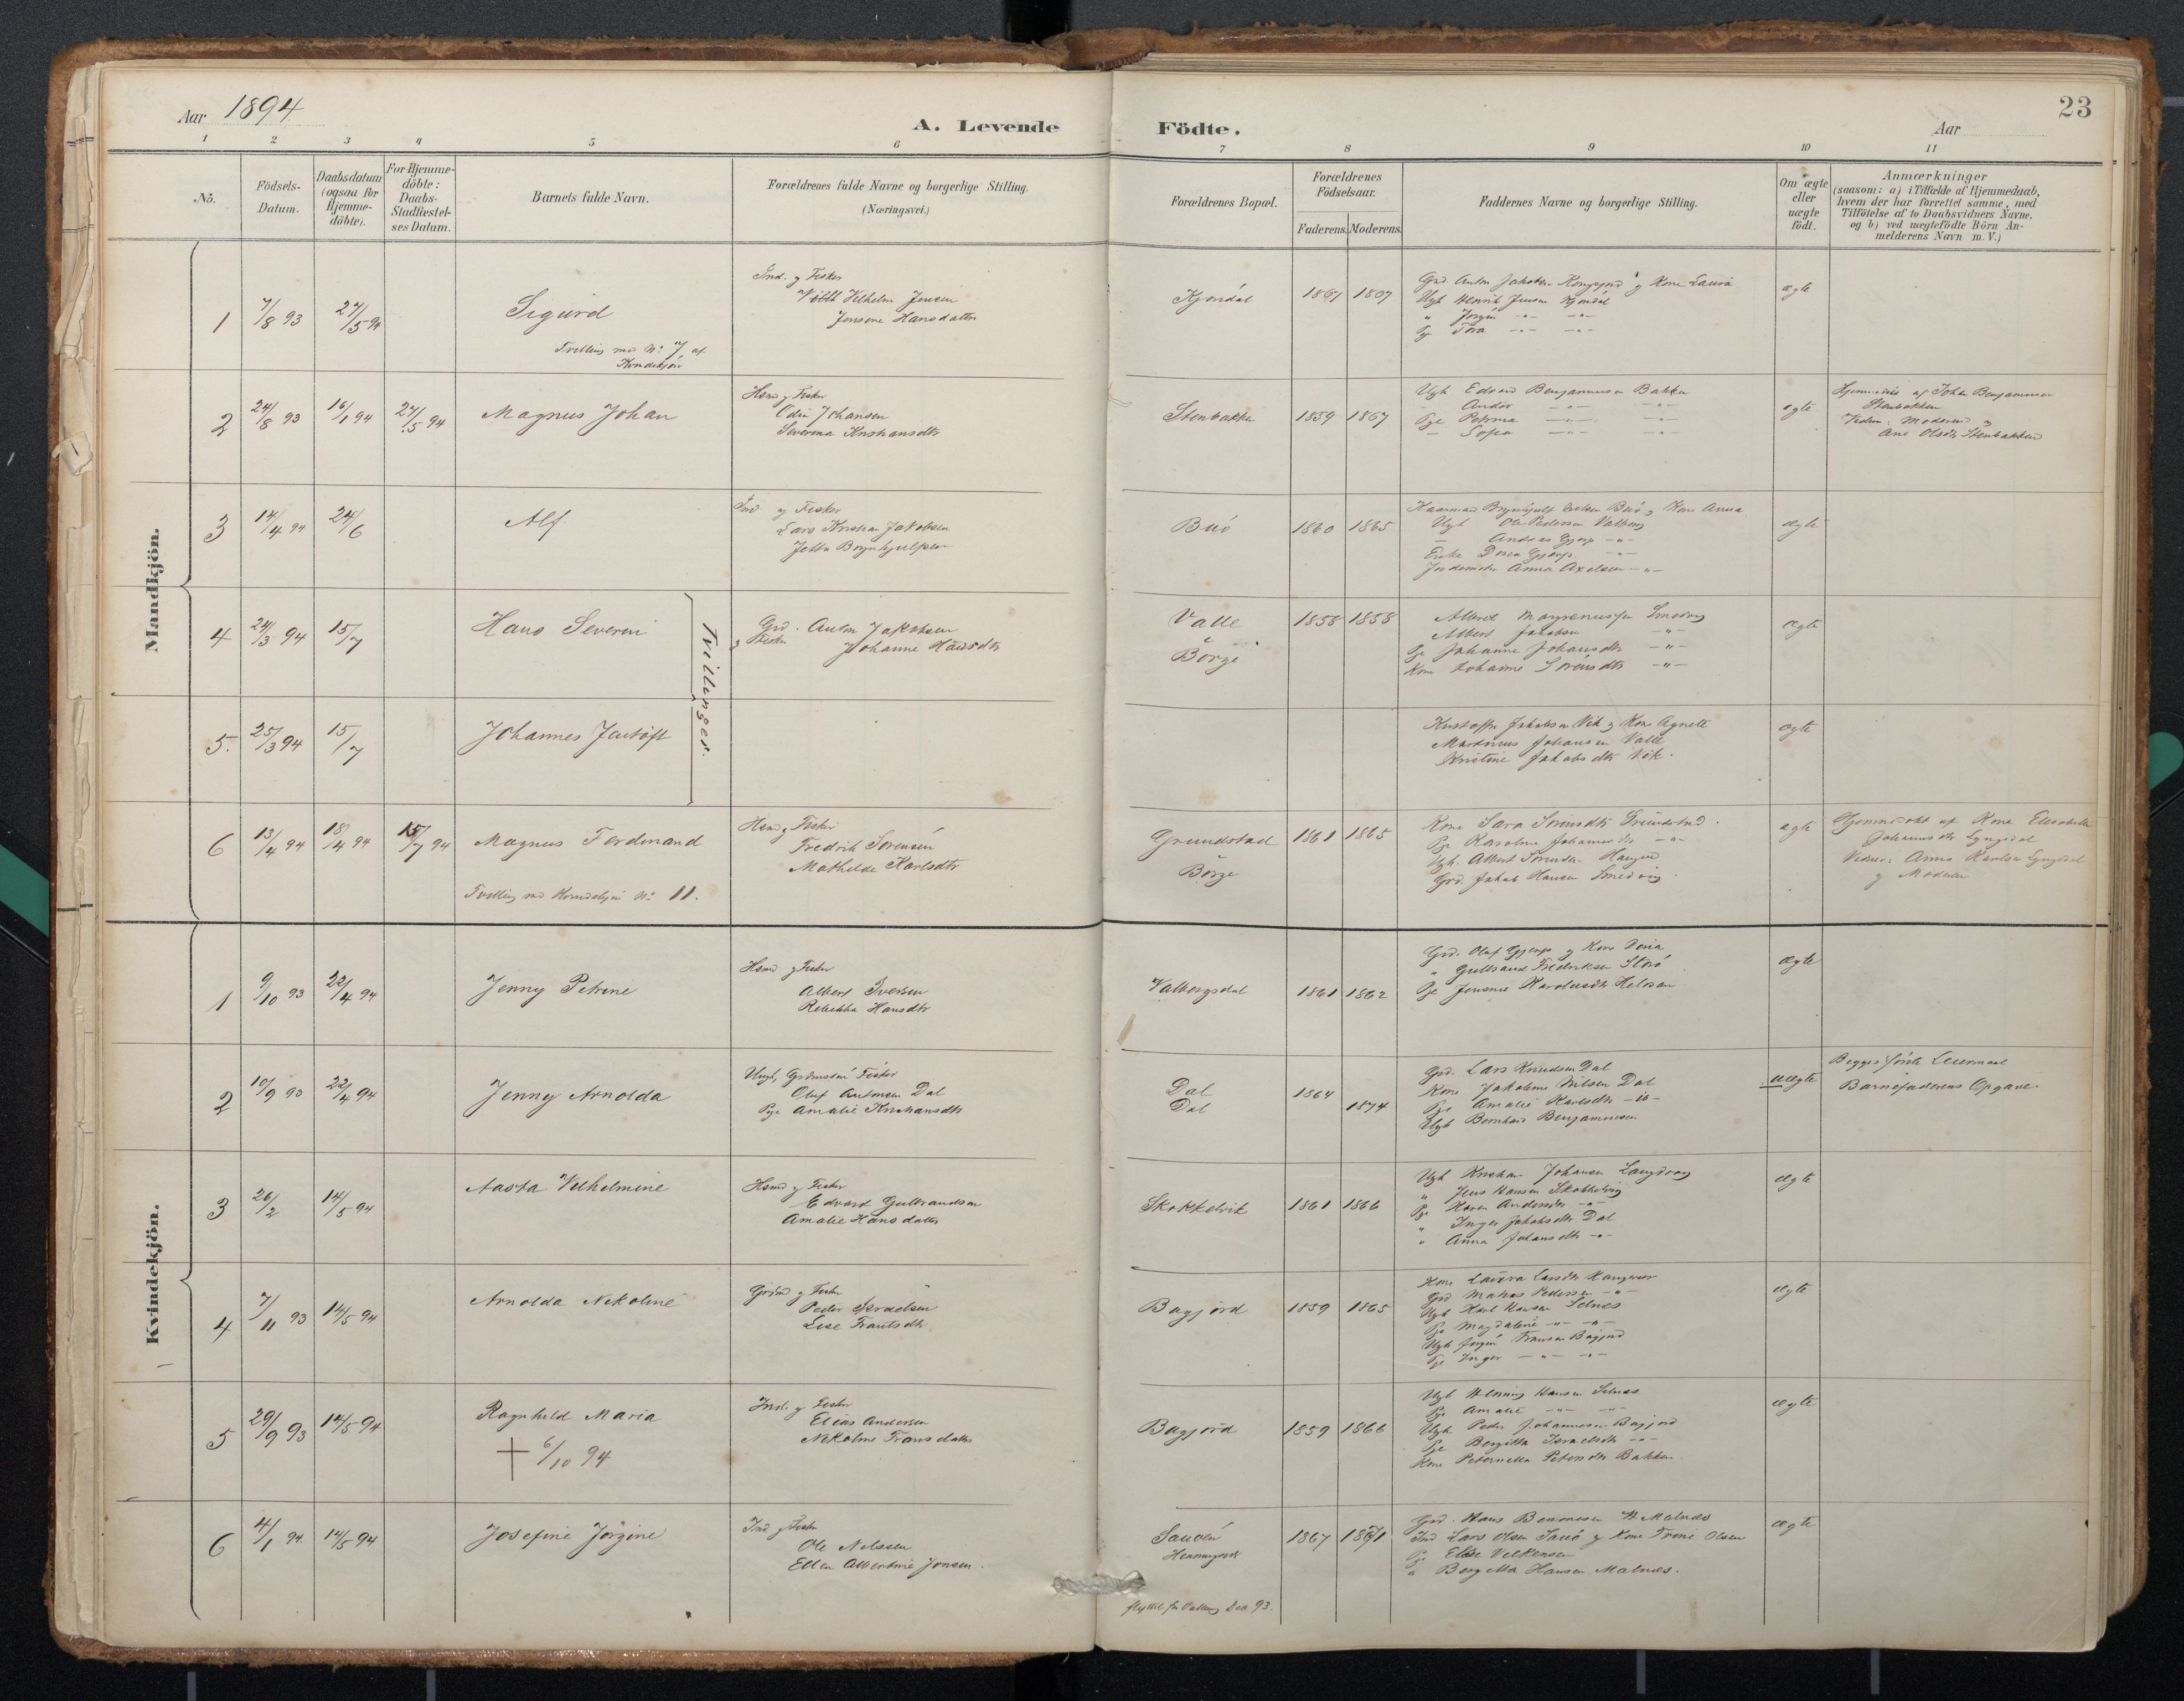 Aar 1894
A. Levende Födte.
Aar
23
1 2 3 4 5 6 7 8 9 10 11
No.
Födsels-
Datum.
Daabsdatum
(ogsaa for
Hjemme-
döbte).
For Hjemme-
döbte:
Daabs-
Stadfæstel-
ses Datum.
Barnets fulde Navn.
Forældrenes fulde Navne og borgerlige Stilling.
(Næringsvei.)
Forældrenes Bopæl.
Forældrenes
Födselsaar.
Faderens. Moderens.
Faddernes Navne og borgerlige Stilling.
Om ægte
eller
uægte
födt.
Anmærkninger
(saasom: a) i Tilfælde af Hjemmedaab,
hvem der har forrettet samme, med
Tilföielse af to Daabsvidners Navne.
og b) ved uægtefödte Börn An-
melderens Navn m. V.)
Mandkjön.
1 7/8 93 27/5 94
Sigurd
Tvilling med No 7 af
Kvindekjön
Ind. og Fisker
Vilhelm Jensen
Jensine Hansdatter
Kjøndal
1867
Grd. Anton Jakobsen og Kone Laura
Ugk Henrik Jensen Kjøndal
" Jørgen -"- -"-
Pge Tora -"- -"-
ægte
2 24/8 93 16/1 94 27/5 94
Magnus Johan
Hsmd og Fisker
Odin Johansen
Severina Kristiansdtr
Stenbakken
1859 1867
Ugk Edvard Benjaminsen Bakken
- Andor -"- -"-
Pge Petrina -"- -"-
- Sofia -"- -"-
ægte
Hjemmedøbt af Johan Benjaminsen
Stenbakken
Vidner: Moderen og
Ane Olsdtr Stenbakken
3 14/4 94 24/6
Alf
Ind og Fisker
Lars Kristian Jakobsen
Jetta Brynhjulfsen
Buö
1860 1865
Brynhjulf Buö og Kone Anna
Ugk Ole Pedersen Valberg
- Andreas Gjerp -"-
Enke Dorea Gjerp -"-
Jordemoder Anna Axelsen -"-
ægte
4 24/3 94 15/7
Hans Severin
Tvillinger.
Grd. Anton Jakobsen
og Fisker Johanne Hansdtr
Valle
Börge
1858 1858
Albert Jakobsen -"-
Pge Johanne Johansdtr -"-
Kone Johanne Sörensdtr -"-
ægte
5. 25/3 94 15/7
Johannes Jentoft
Kristoffer Jakobsen Vik og Kone Agnete
Mardonius Johansen Valle
Kristine Jakobsdtr Vik.
ægte
6 13/4 94 18/4 94 15/7 94
Magnus Ferdinand
Tvilling med Kvindekjön No 11.
Hsmd og Fisker
Fredrik Sörensen
Mathilde Karlsdtr
Grundstad
Börge
1861 1865
Kone Sara Sörensdtr Grundstad.
Pge Karoline Johannesdtr -"-
Ugk. Albert Sörensen
Grd. Jakob Hansen Smedvig
ægte
Hjemmedöbt af Kone Elisabeth
Johannesdtr Lyngedal
Vidner: Anna Karlsen Lyngedal
og Moderen
Kvindekjön.
1 9/10 93 22/4 94
Jenny Petrine
Hsmd og Fisker
Albert Iversen
Rebekka Hansdtr
Valbergsdal
1861 1862
Grd. Oluf Gjerp og Kone Doria
" Gulbrand Fredriksen Storö
Pge Jensine
ægte
2 10/9 93 22/4 94
Jenny Arnolda
Ungk, Grdmssön Fisker
Oluf Antonsen Dal
Pge Amalie Kristiansdtr
Dal
Dal
1864
1874
Grd. Lars Knudsen Dal
Kone Jakobine Nilsen Dal
Pge Amalie Karlsdtr -"-
Ugk Bernhard Benjaminsen
uægte
Begges förste Leiermaal
Barnefaderens Opgave
3 26/2 14/5 94
Aasta Vilhelmine
Hsmd og Fisker
Edvard Gulbrandsen
Amalie Hansdatter
Skokkelvik
1861 1866
Ugk Kristian Johansen Langdrag
" Jens Hansen Skokkelvig
Pge Karen Andersdtr -"-
" Inger Jakobsdtr Dal
" Anna Johansdtr -"-
ægte
4 7/11 93 14/5 94
Arnolda Nikoline
Grdmd og Fisker
Peder Israelsen
Lise Frantsdtr
Bagjord
1859 1865
Kone Laura Larsdtr
Grd Mathias Pedersen -"-
Ugk Karl Hansen Selnes
Pge Magdalene -"- -"-
Ugk Jörgen Fransen Bagjord
Pge Inger -"- -"-
ægte
5 29/9 93 14/5 94
Ragnhild Maria
† 6/10 94
Ind. og Fisker
Elias Andersen
Nikoline Fransdatter
Bagjord
1859 1866
Ugk Henning Hansen Selnes
Pge Amalie -"- -"-
Ugk Peder Johannesen Bagjord
Pge Bergitta Israelsdtr -"-
Kone Peternella Petersdtr Bakken
ægte
6 4/1 94 14/5 94
Josefine Jörgine
Ind og Fisker
Ole Nilssen
Ellen Albertine Jensen.
Sauöen
Henningsvær
flyttet fra Valberg Dec 93.
1867 1861
Grd. Hans Benonisen Malnes
Ind Lars Olsen Sauö og Kone Trine Olsen
Pge Elise Vilkensen
" Bergitta Hansen Malnes.
ægte